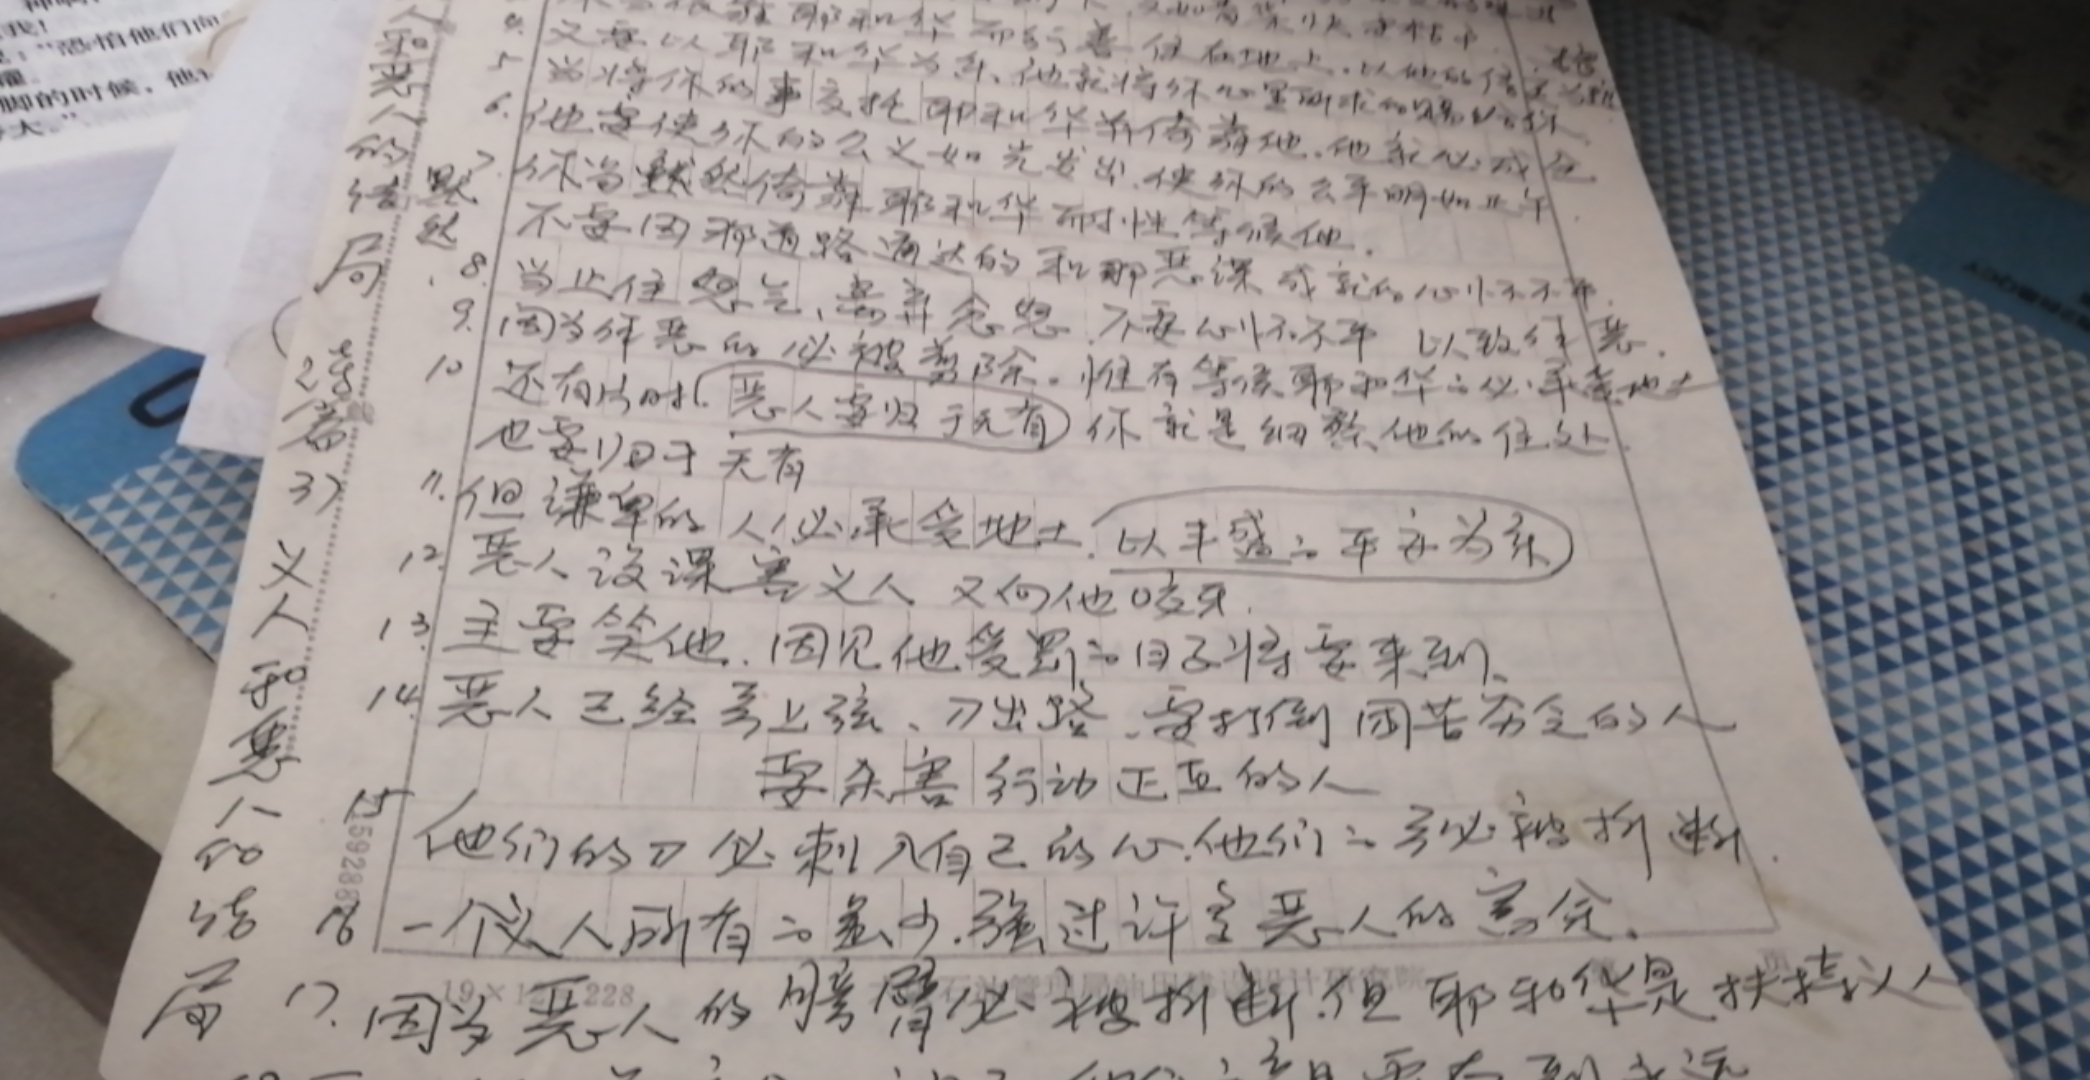 又要以耶和华为乐、他就将你心里所求的赐给你
5 当将你的事交托耶和华并倚靠他、他就必成全
6. 他要使你的公义如光发出、使你的公平明如正午.
7. 你当默然倚靠耶和华耐性等候他.
不要因那道路通达的和那恶谋成就的心怀不平.
8. 当止住怒气、离弃忿怒、不要心怀不平 以致作恶.
9. 因为作恶的必被剪除。惟有等候耶和华的必承受地土
10 还有片时(恶人要归于无有)你就是细察他的住处.
也要归于无有
11. 但谦卑的人必承受地土、(以丰盛的平安为乐)
12. 恶人设谋害义人 又向他咬牙.
13. 主要笑他、因见他受罚的日子将要来到、
14. 恶人已经弓上弦、刀出鞘、要打倒困苦穷乏的人
要杀害行动正直的人
15 他们的刀必刺入自己的心.他们的弓必被折断.
16 一个义人所有的虽少、强过许多恶人的富余.
17. 因为恶人的膀臂必被折断.但耶和华是扶持义人
人和恶人的结局
默然
诗篇
37
义人和恶人的结局
1592886
19×12=228
"恐怕他们向
脚的时候、他
大。"